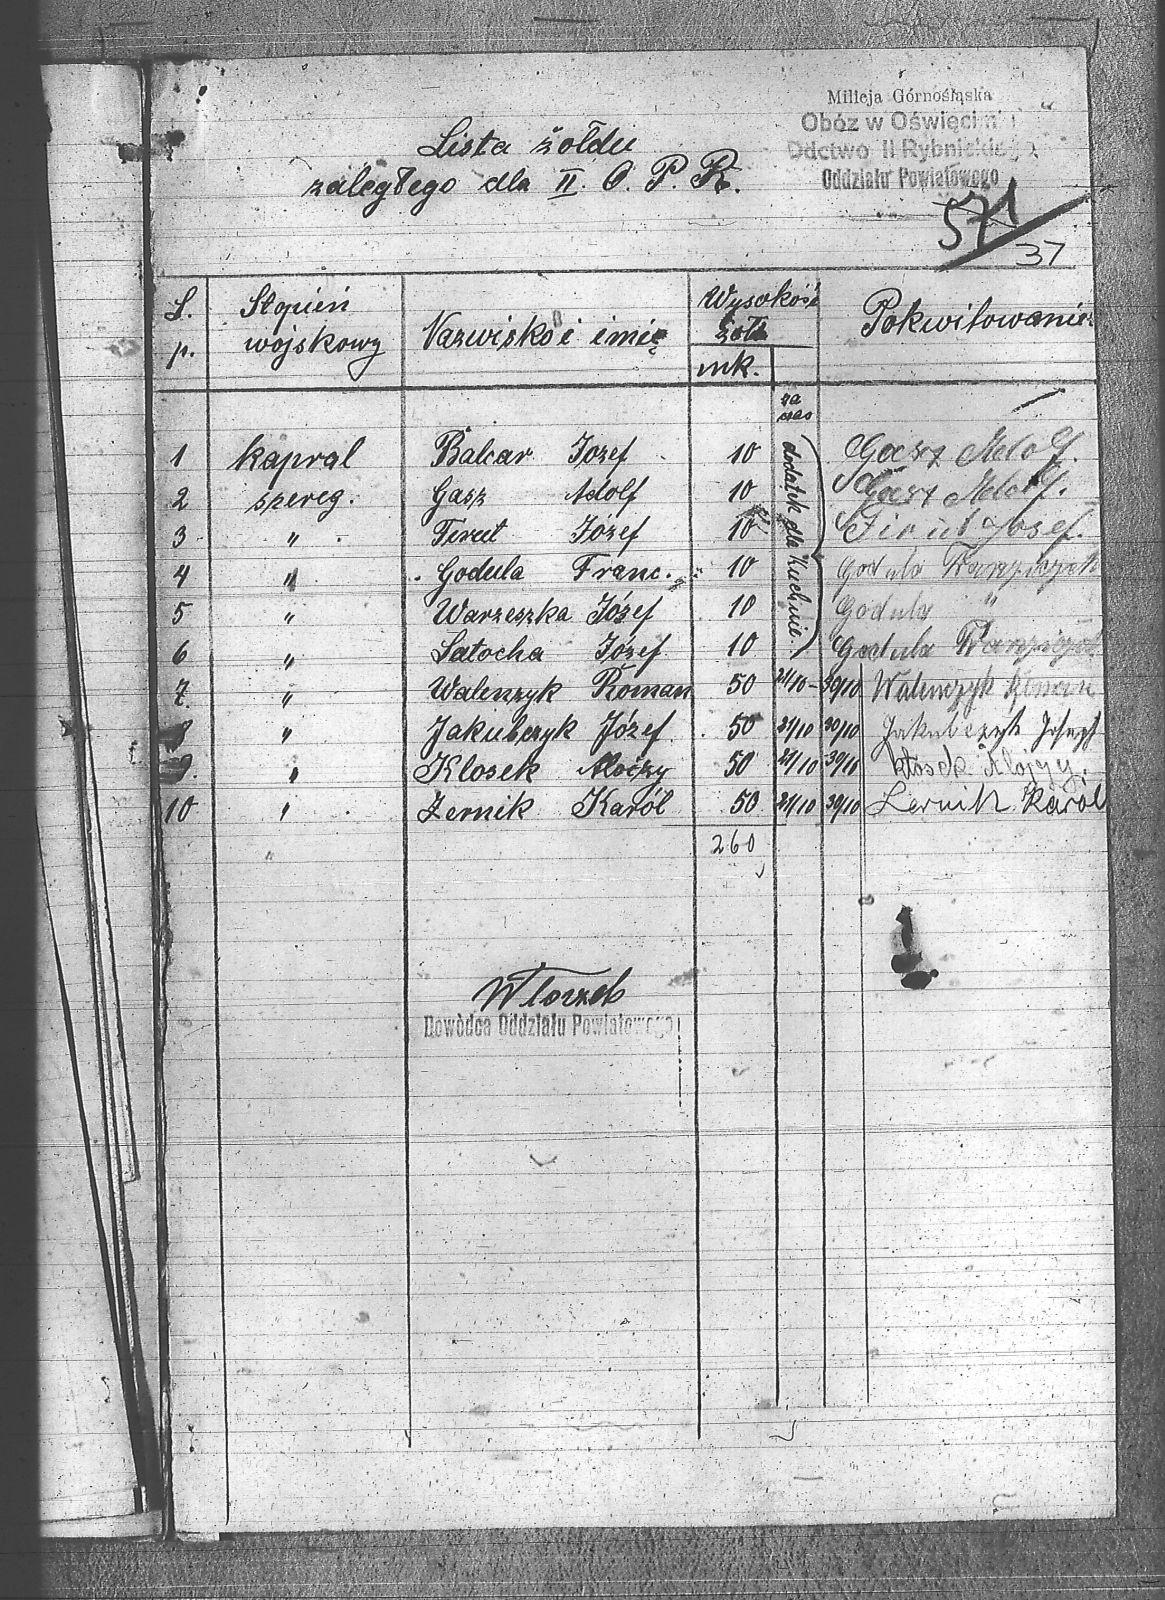 Milicja Górnośląska
Obóz w Oświęcimiu
Ddctwo II Rybnickiego
Oddziału Powiatowego
Lista żołdu
zaległego dla II. O. P. R.
571
37
L. p. Stopień wojskowy Nazwisko i imię Wysokość żołdu mk. Pokwitowanie
za czas
dodatek dla kuchnie.
1 kapral Balcar Józef 10 Gasz Adolf.
2 szereg. Gasz Adolf 10 Gasz Adolf.
3 " Tirut Józef 10 Tirut Josef.
4 " Godula Franc. 10 Godula Franziszek
5 " Warzeszka Józef 10 Godula "
6 " Latocha Józef 10 Godula Franziszek
7. " Walenzyk Roman 50 21/10 - 30/10 Walenzyk Roman
8 " Jakubczyk Józef 50 21/10 30/10 Jakubczyk Joseph
9. " Klosek Alojzy 50 21/10 30/10 Klosek Alojzy.
10 " Żernik Karól 50 21/10 30/10 Żernik Karól
260
Dowódca Oddziału Powiatowego